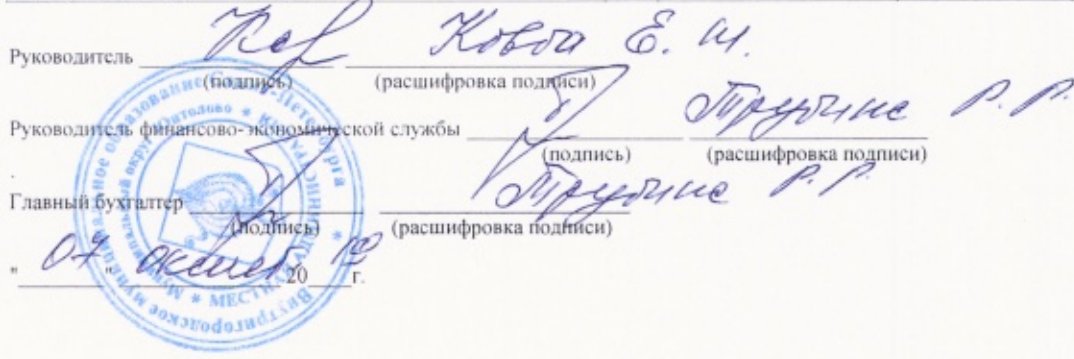 Руководитель Ковба Е. И.
(подпись) (расшифровка подписи)
Руководитель финансово-экономической службы Трубина Р. Р.
(подпись) (расшифровка подписи)
Главный бухгалтер Трубина Р. Р.
(подпись) (расшифровка подписи)
"07" 20 г.
Внутригородское муниципальное образование Санкт-Петербурга *
Муниципальный округ Юнтолово *
* МЕСТНАЯ АДМИНИСТРАЦИЯ